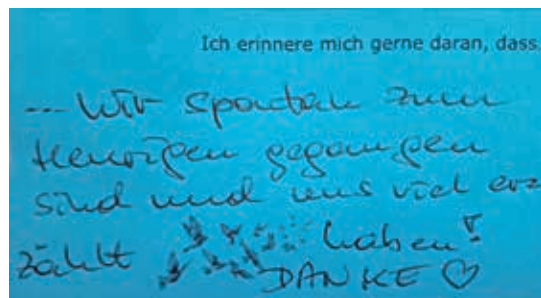 Ich erinnere mich gerne daran, dass
... wir spontan zum
Heurigen gegangen
sind und uns viel er=
zählt haben!
DANKE ♡